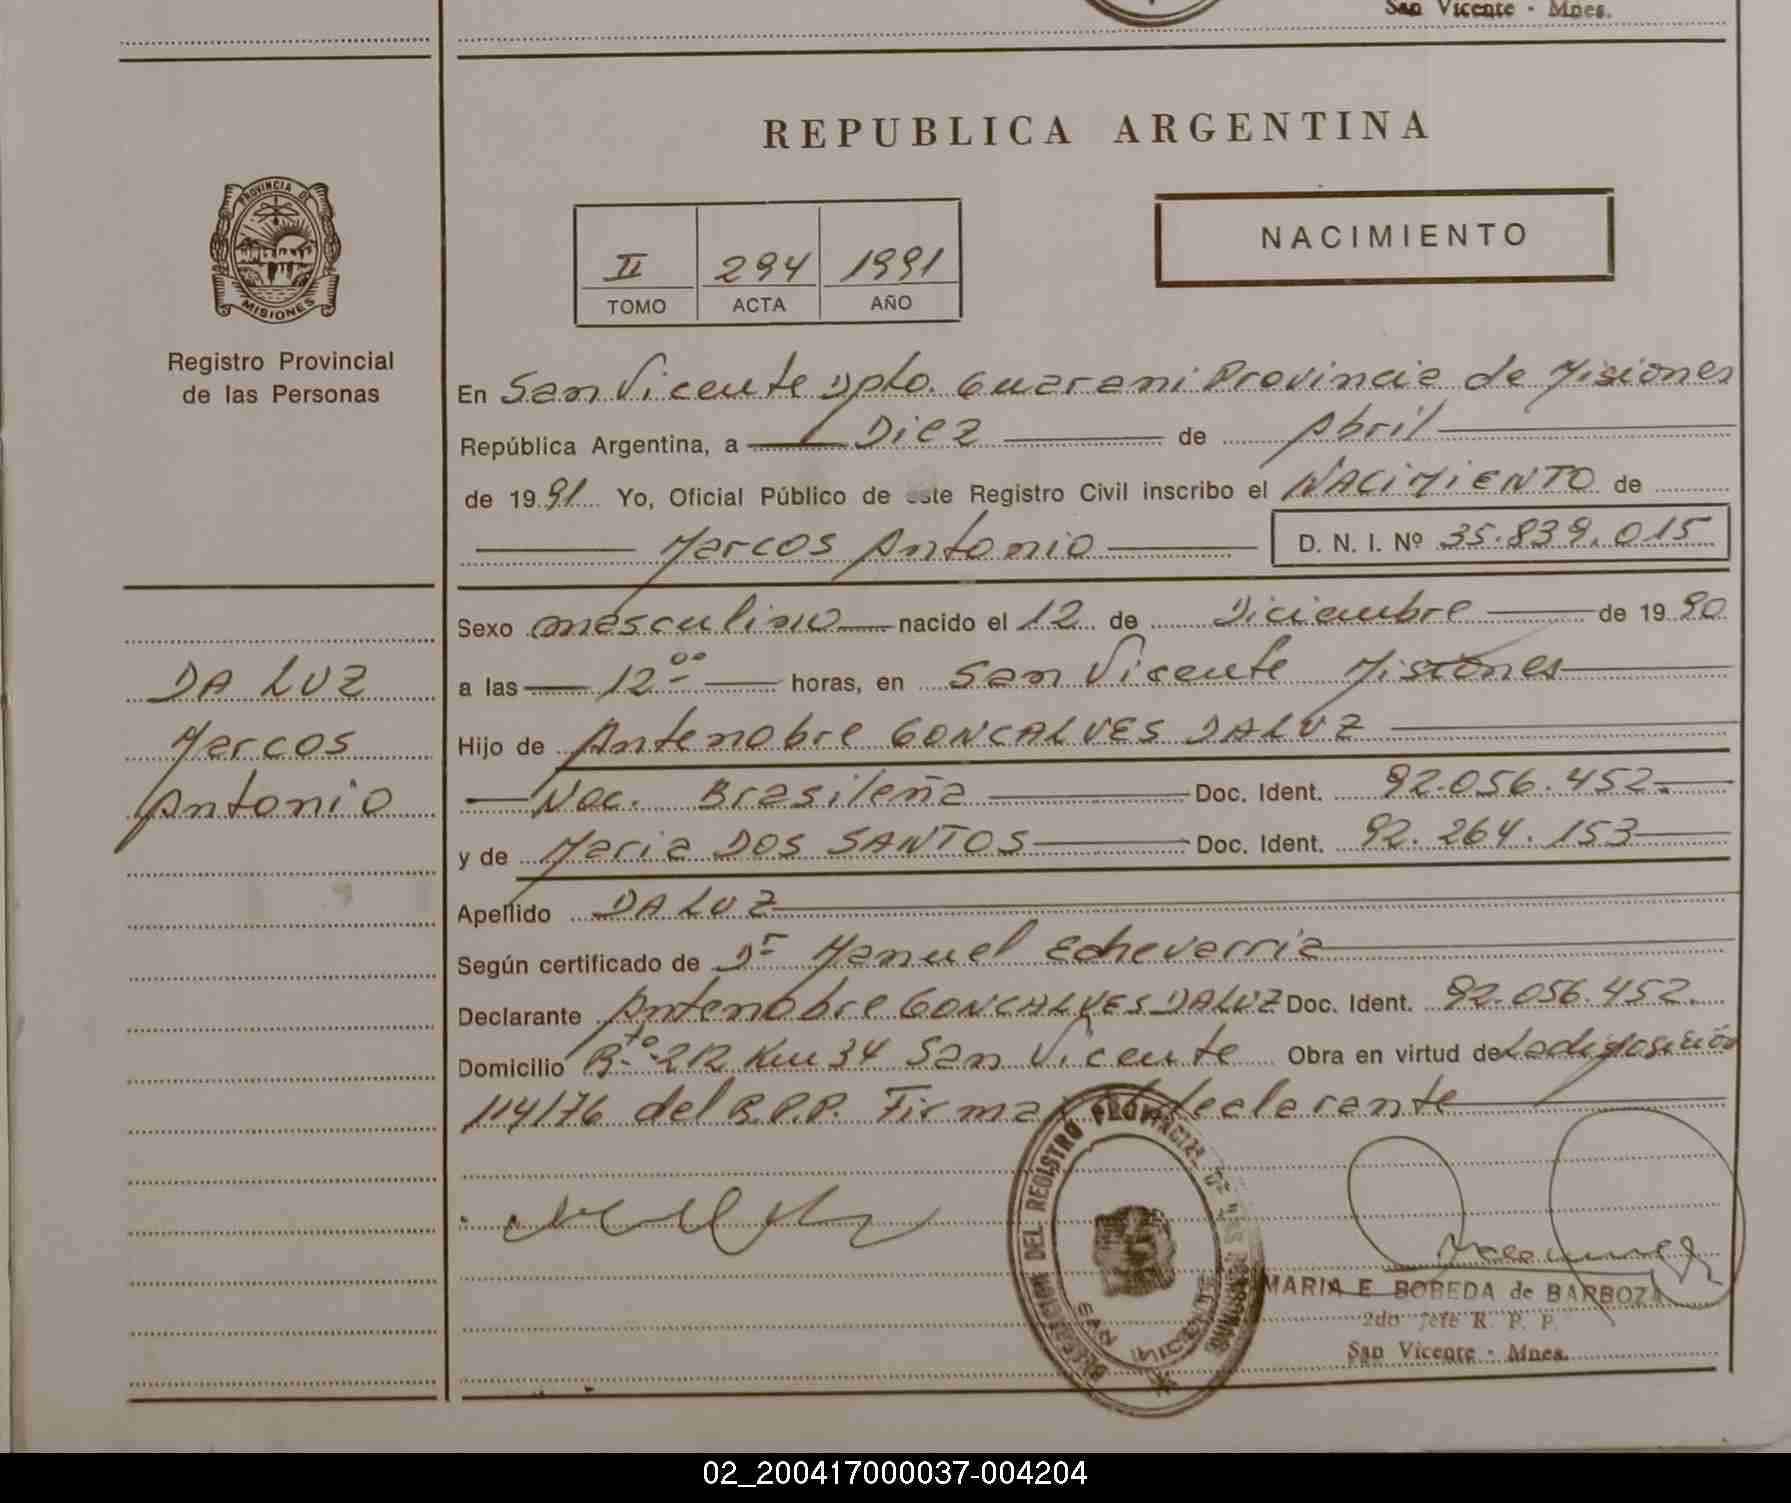 San Vicente - Mnes.
REPUBLICA ARGENTINA
PROVINCIA DE
MISIONES
Registro Provincial
de las Personas
II 294 1991
TOMO ACTA AÑO
NACIMIENTO
En San Vicente Dpto. Guarani Provincia de Misiones
República Argentina, a Diez de Abril
de 1991 Yo, Oficial Público de este Registro Civil inscribo el NACIMIENTO de
Marcos Antonio D. N. I. Nº 35.839.015
DA LUZ
Marcos
Antonio
Sexo masculino nacido el 12 de Diciembre de 1990
a las 12°° horas, en San Vicente Misiones
Hijo de Antenobre GONCALVES DALUZ
Nac. Brasileña Doc. Ident. 92.056.452.
y de Maria DOS SANTOS Doc. Ident. 92.264.153
Apellido DA LUZ
Según certificado de Dr Manuel Echeverria
Declarante Antenobre GONCALVES DALUZ Doc. Ident. 92.056.452.
Domicilio R.ta 212 Km 34 San Vicente Obra en virtud de La disposición
114/76 del R.P.P. Firma el declarante
DEL REGISTRO PROVINCIAL DE LAS PERSONAS
SAN VICENTE
MARIA E. BOBEDA de BARBOZA
2do Jefe R. P. P.
San Vicente - Mnes.
02_200417000037-004204